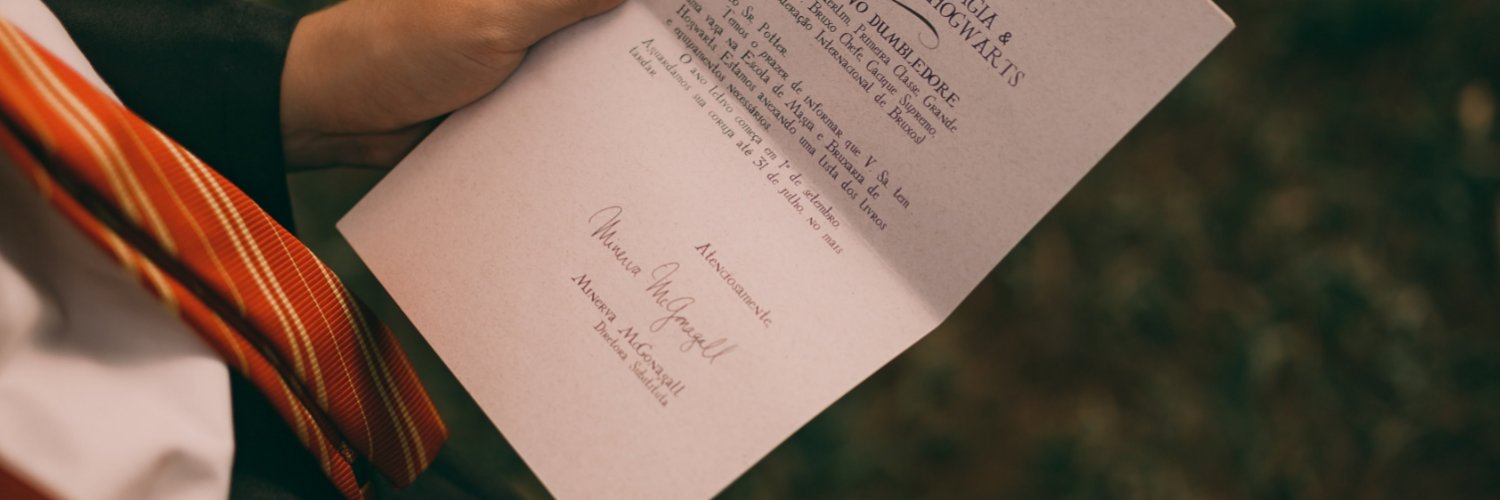 &
HOGWARTS
DUMBLEDORE
Primeira Classe, Grande
Bruxo Chefe, Cacique Supremo,
Internacional de Bruxos)
Sr. Potter,
Temos o prazer de informar que V. Sa. tem
uma vaga na Escola de Magia e Bruxaria de
Hogwarts. Estamos anexando uma lista dos livros
e equipamentos necessários.
O ano letivo começa em 1º de setembro.
Aguardamos sua coruja até 31 de julho, no mais
tardar.
Atenciosamente,
Minerva McGonagall
Minerva McGonagall
Diretora Substituta